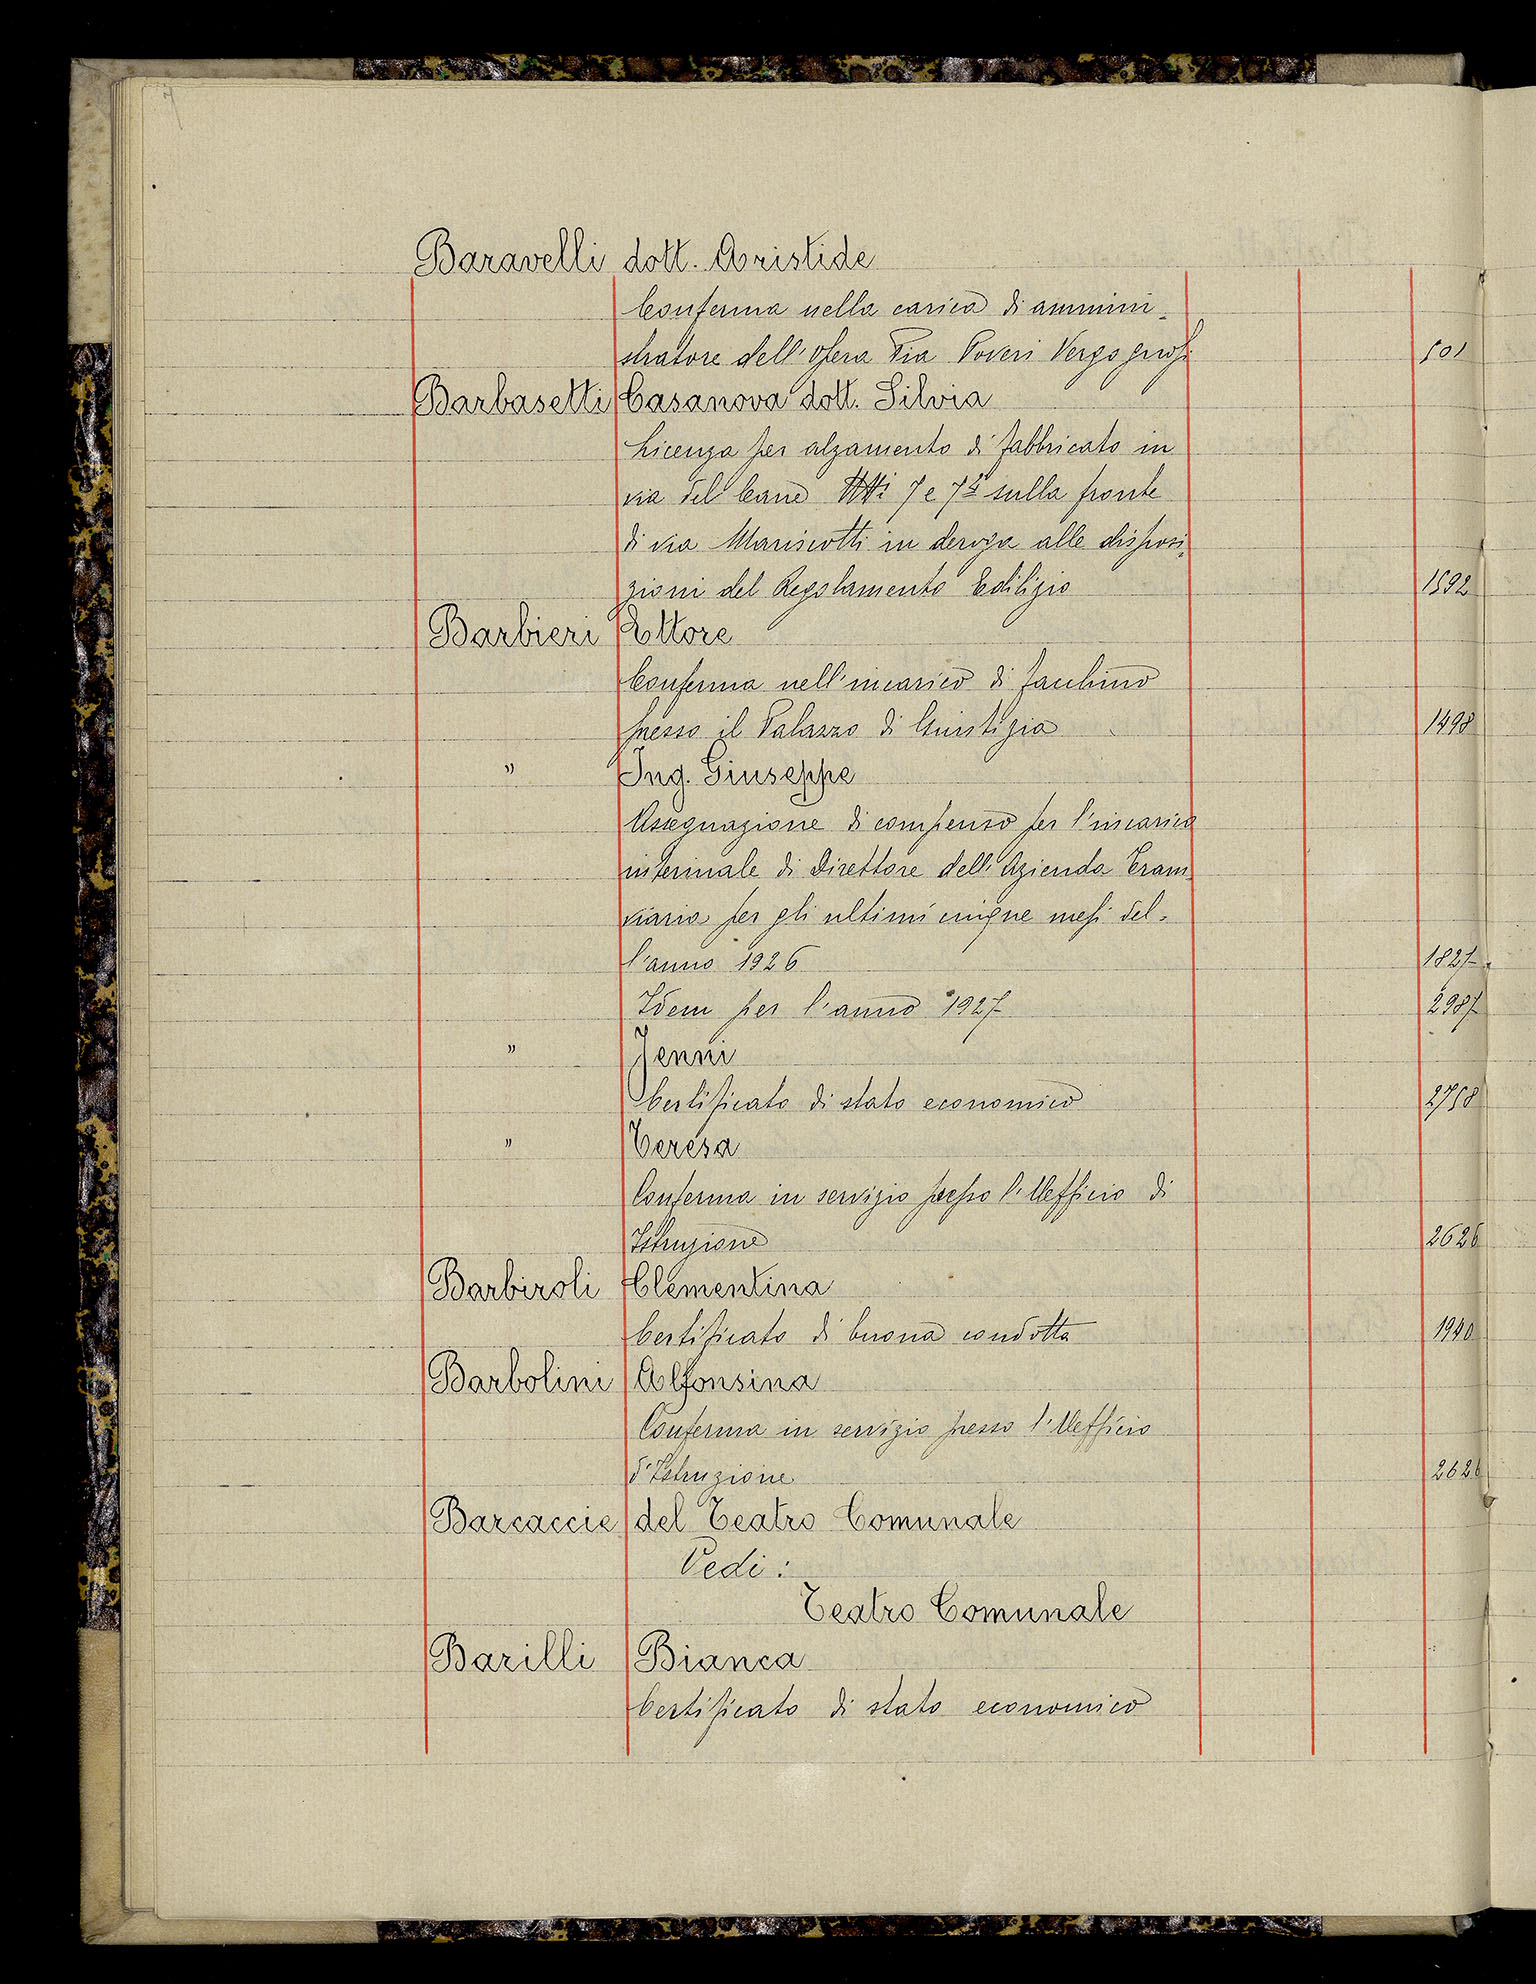 Baravelli dott. Aristide
Conferma nella carica di ammini-
stratore dell'Opera Pia Poveri Vergognosi 501
Barbasetti Casanova dott. Silvia
Licenza per alzamento di fabbricato in
via del Cane NNi 7 e 7 sulla fronte
di via Mariscotti in deroga alle disposi-
zioni del Regolamento Edilizio 1592
Barbieri Ettore
Conferma nell'incarico di facchino
presso il Palazzo di Giustizia 1498
" Ing. Giuseppe
Assegnazione di compenso per l'incarico
interinale di Direttore dell'Azienda Tram-
viaria per gli ultimi cinque mesi del-
l'anno 1926 1827
Idem per l'anno 1927 2987
" Jenni
Certificato di stato economico 2758
" Teresa
Conferma in servizio presso l'Ufficio di
Istruzione 2626
Barbiroli Clementina
Certificato di buona condotta 1940
Barbolini Alfonsina
Conferma in servizio presso l'Ufficio
d'Istruzione 2626
Barcaccie del Teatro Comunale
Vedi:
Teatro Comunale
Barilli Bianca
Certificato di stato economico